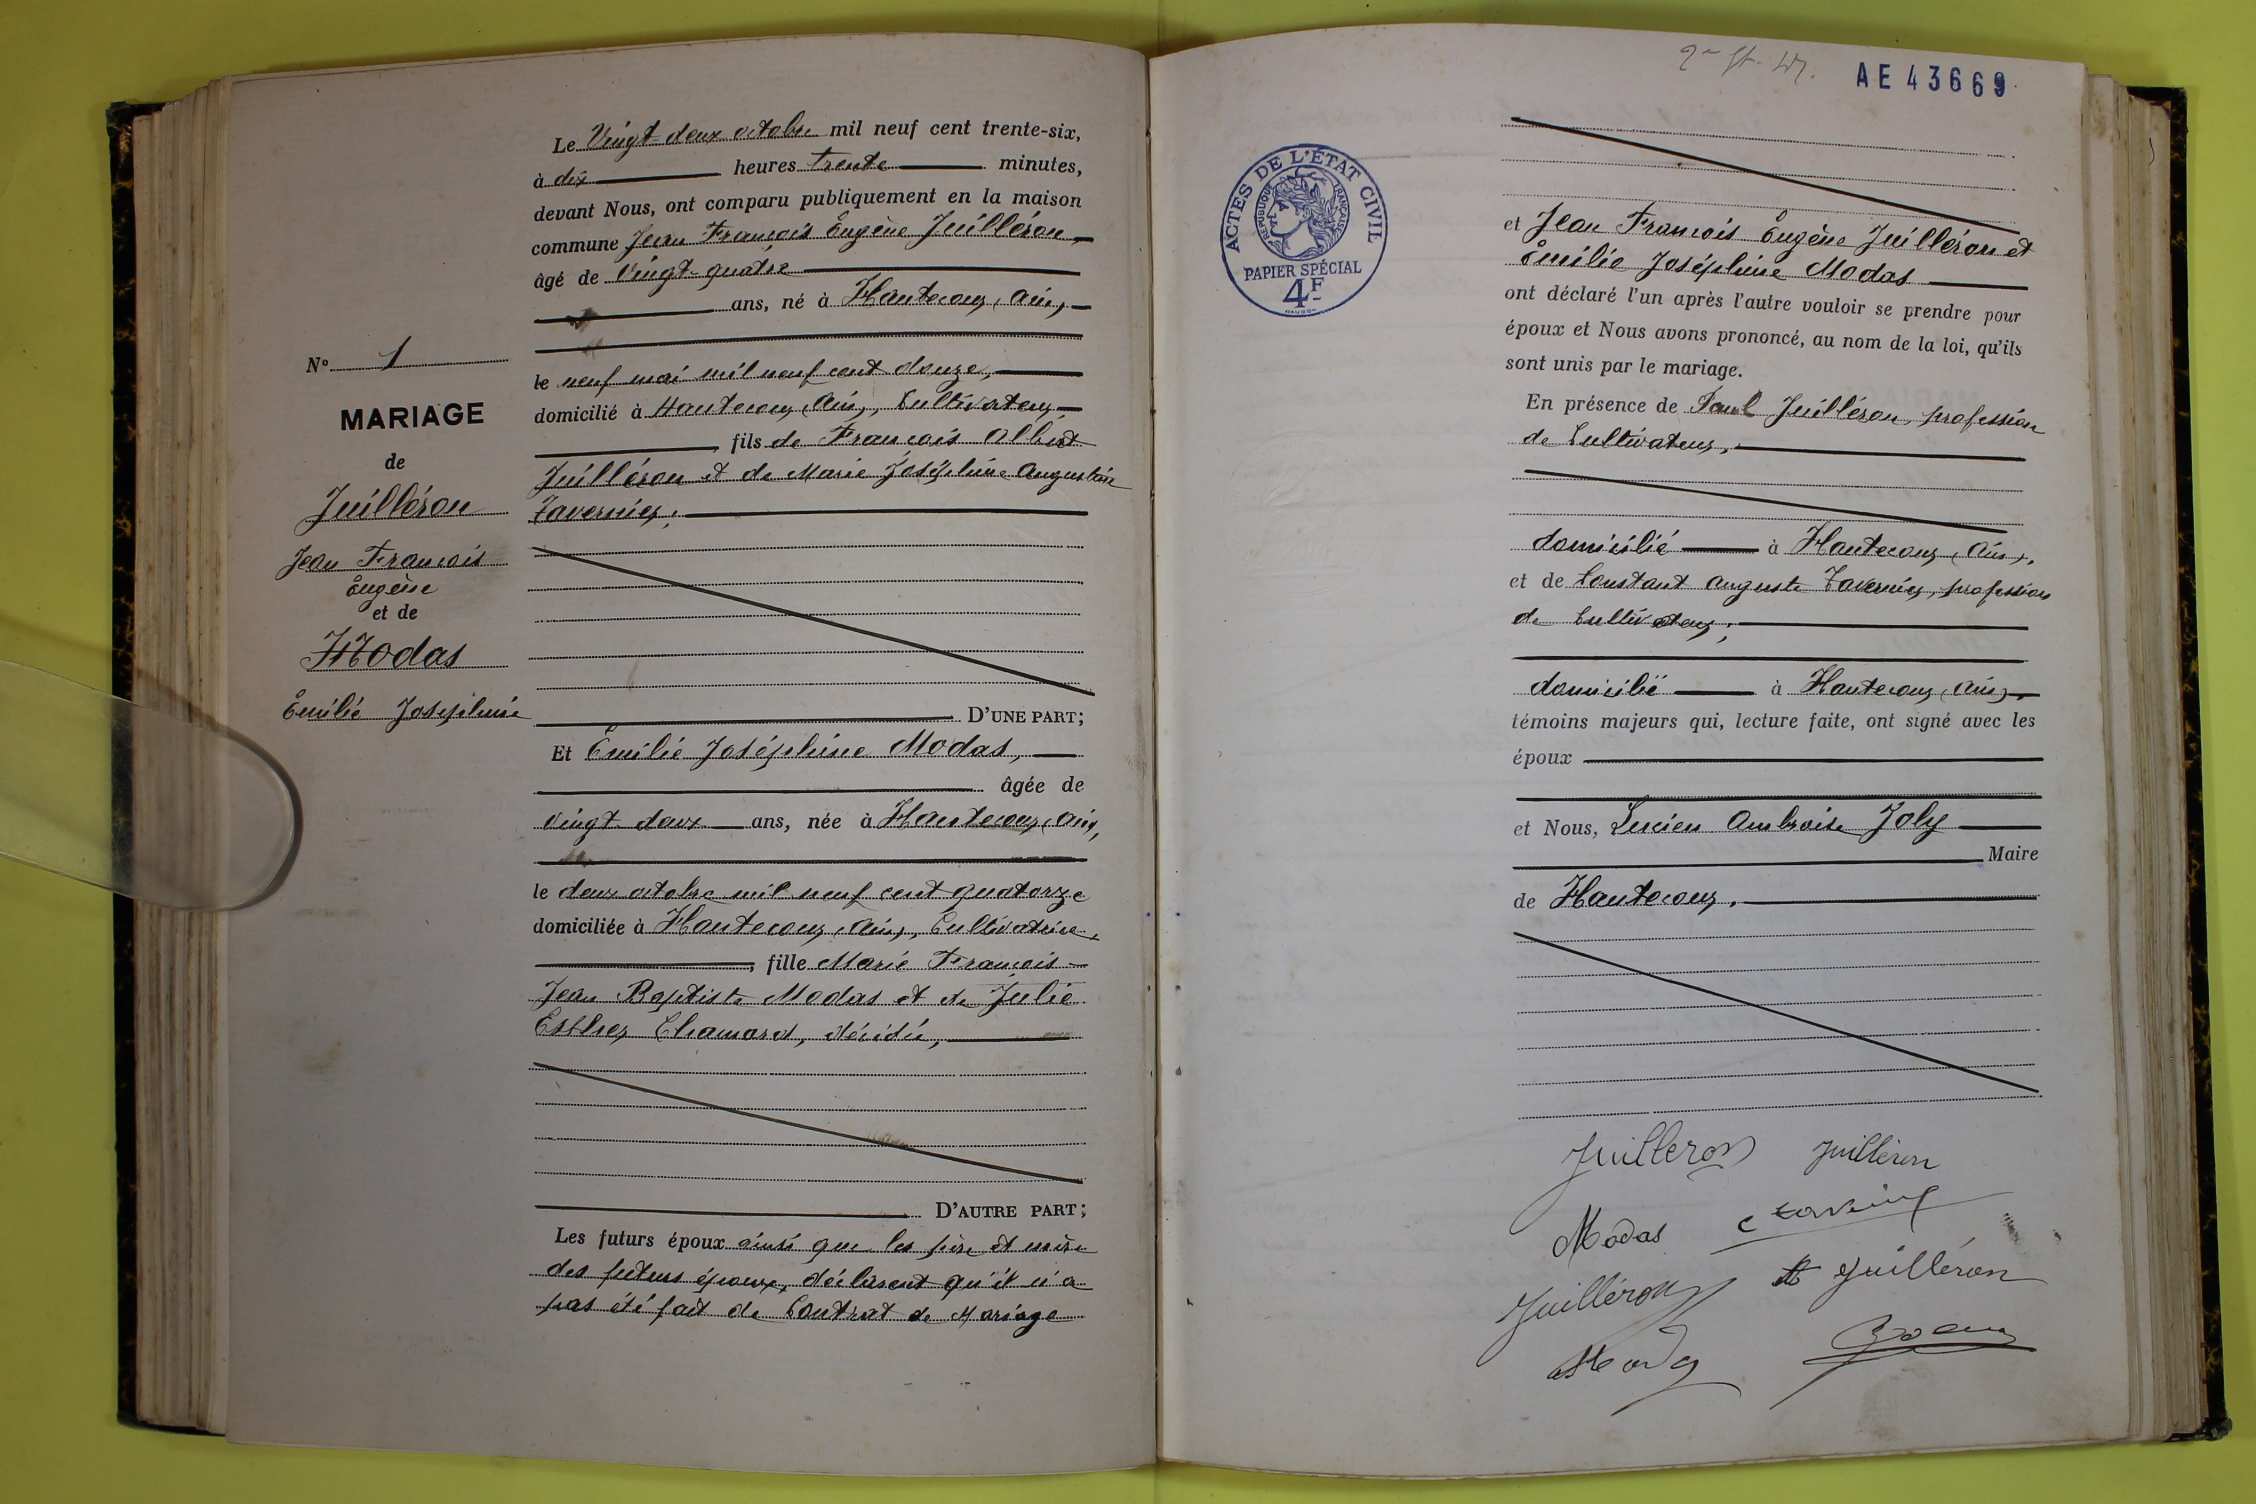 Le Vingt deux octobre mil neuf cent trente-six,
à dix heures trente minutes,
devant Nous, ont comparu publiquement en la maison
commune Jean François Eugène Juilléron
âgé de Vingt-quatre
ans, né à Hautecour (Ain),
le neuf mai mil neuf cent douze,
domicilié à Hautecour (Ain), Cultivateur
fils de François Albert
Juilléron et de Marie Joséphine Augustine
Tavernier;
D'UNE PART;
Et Emilie Joséphine Modas,
âgée de
vingt deux ans, née à Hautecour (Ain),
le deux octobre mil neuf cent quatorze
domiciliée à Hautecour (Ain), Cultivatrice,
, fille Marie François
Jean Baptiste Modas et de Julie
Esther Chamard, décidée,
D'AUTRE PART;
Les futurs époux ainsi que les père et mère
des futurs époux, déclarent qu'il n'a
pas été fait de Contrat de Mariage
N° 1
MARIAGE
de
Juilléron
Jean François
Eugène
et de
Modas
Emilie Joséphine
AE 43669
ACTES DE L'ÉTAT CIVIL
RÉPUBLIQUE FRANÇAISE
PAPIER SPÉCIAL
4F
et Jean François Eugène Juilléron et
Emilie Joséphine Modas
ont déclaré l'un après l'autre vouloir se prendre pour
époux et Nous avons prononcé, au nom de la loi, qu'ils
sont unis par le mariage.
En présence de Paul Juilléron, profession
de Cultivateur,
domicilié à Hautecour (Ain),
et de Constant Auguste Tavernier, profession
de Cultivateur;
domicilié à Hautecour (Ain),
témoins majeurs qui, lecture faite, ont signé avec les
époux
et Nous, Lucien Ambroise Joly
Maire
de Hautecour.
Juilleron Juilléron
Modas
Juilléron A Juilléron